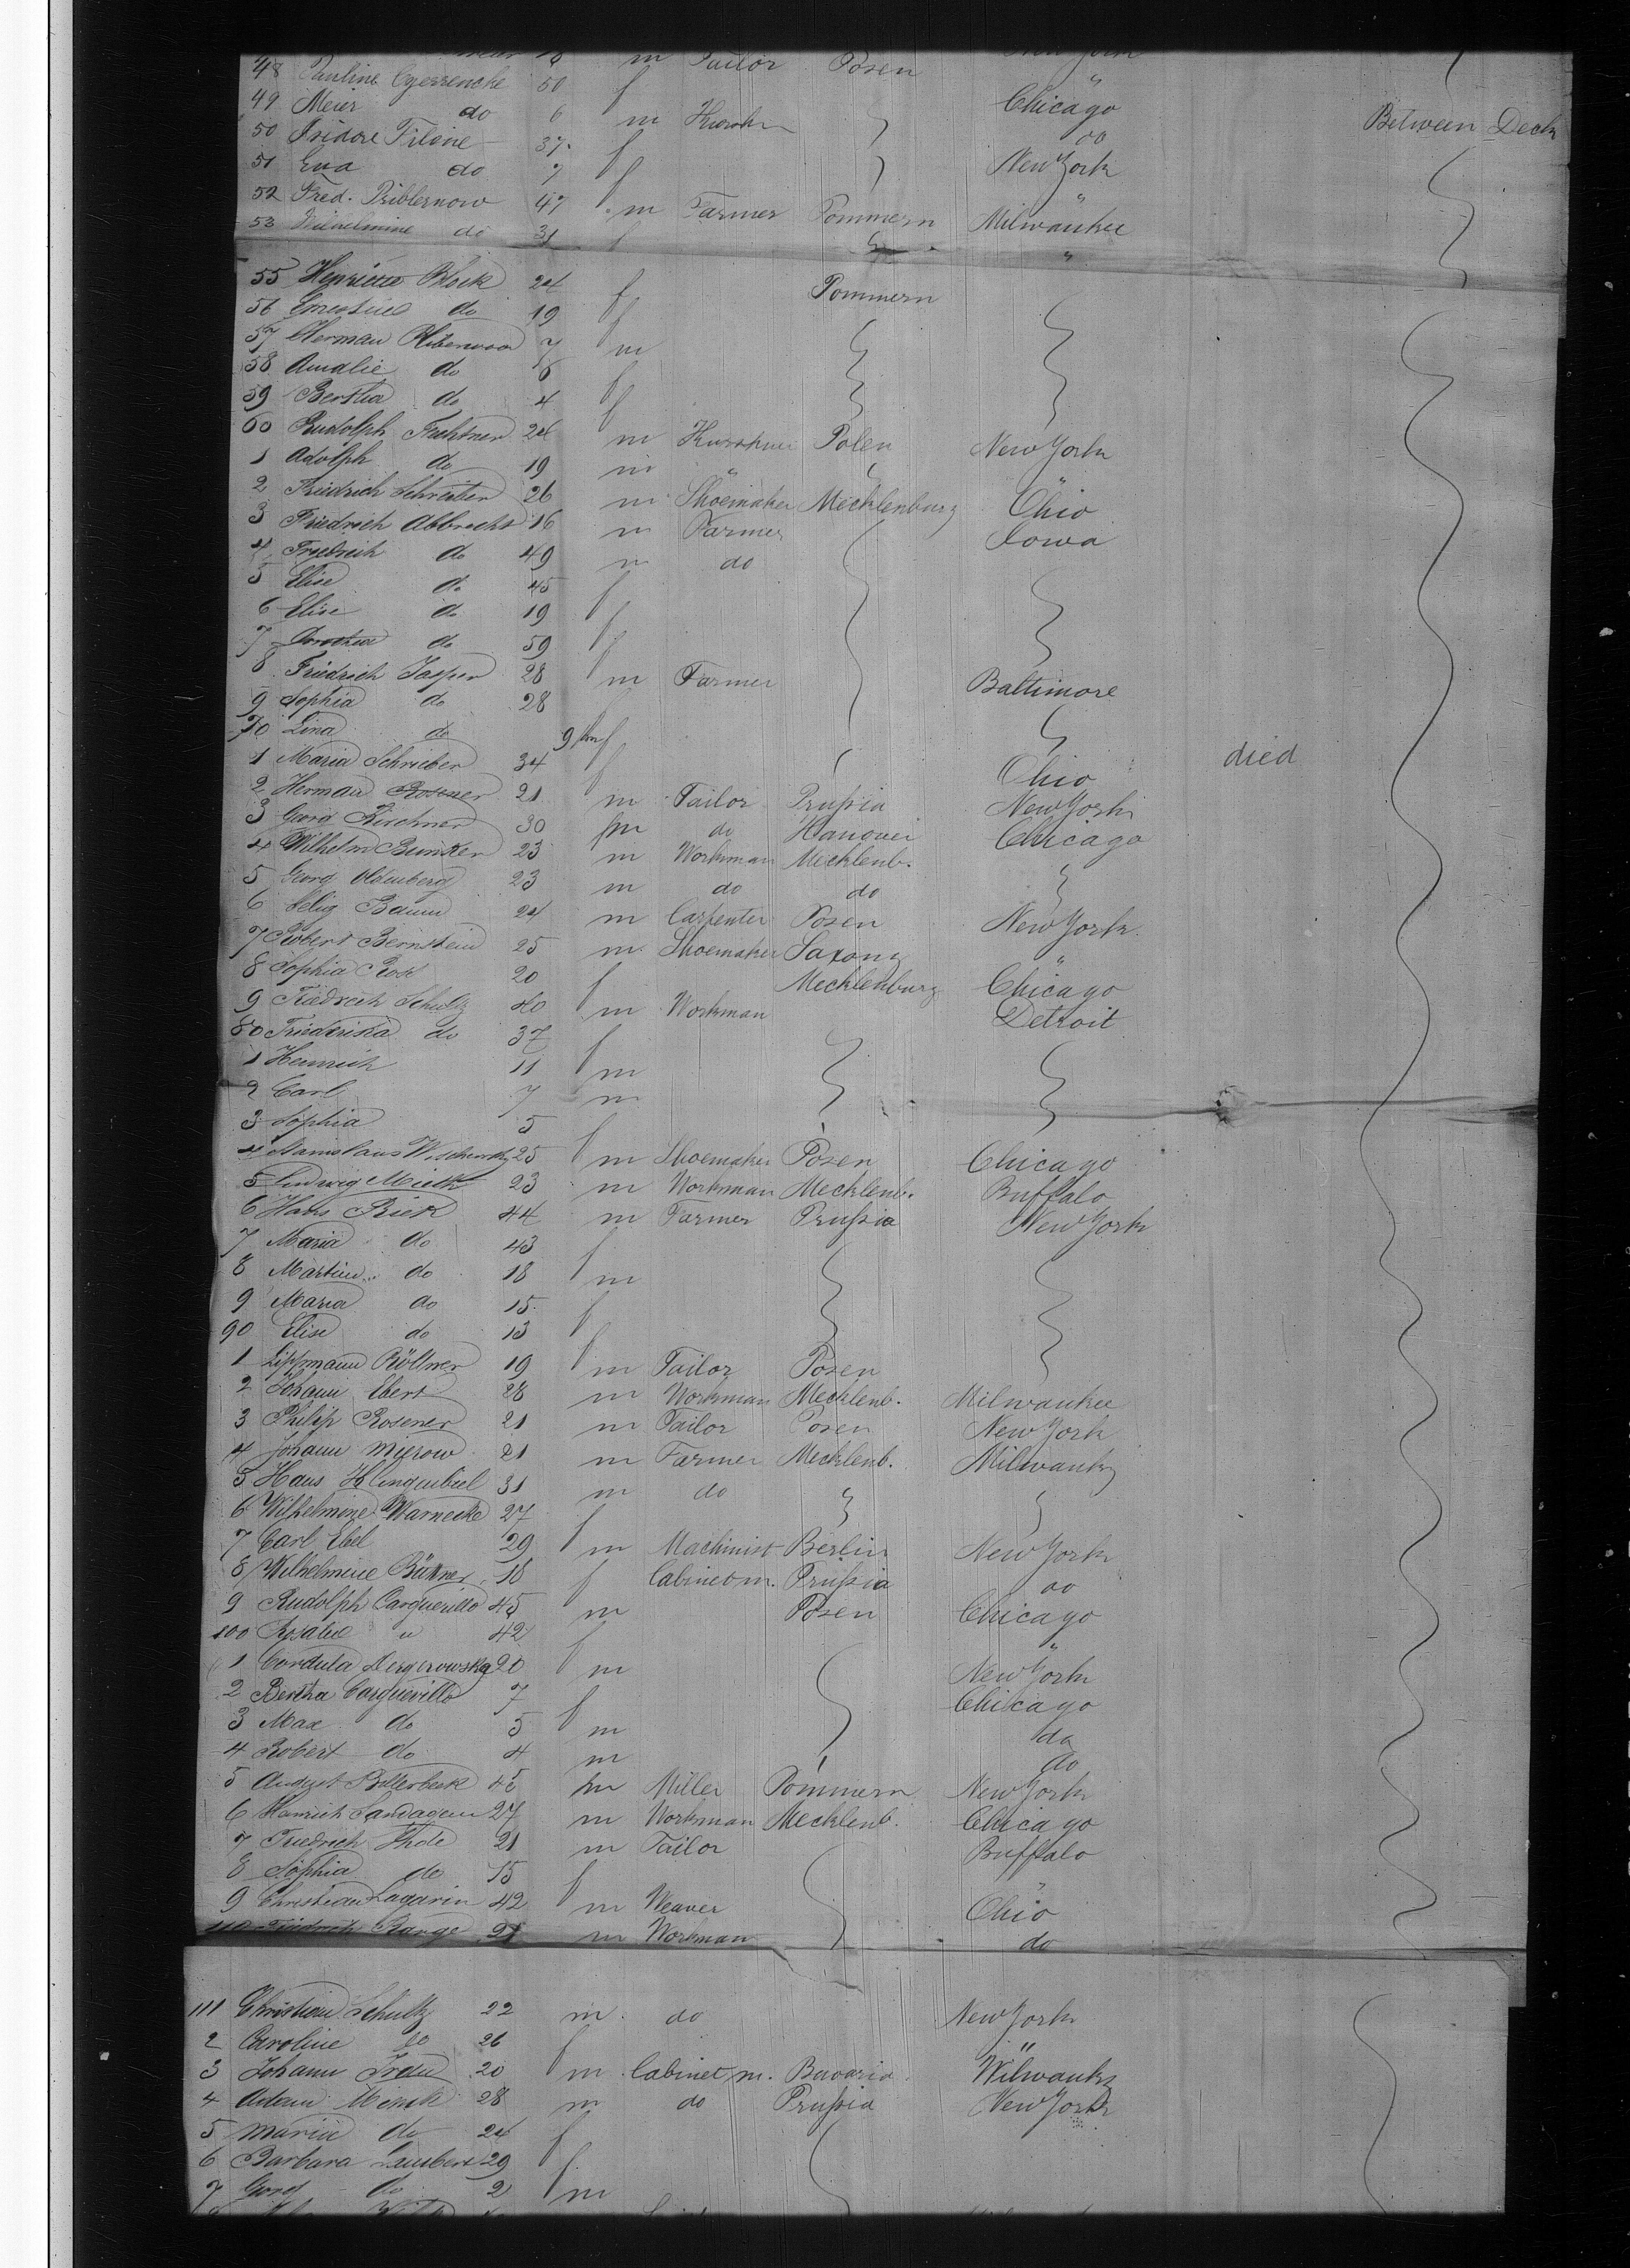 m Tailor Posen New York
48 Pauline 50 f "
49 Meier do 6 m Chicago
50 Isidore Filehne 37 f do Between Deck
51 Eva do 7 f New York
52 Fred. Priblernow 47 m Farmer Pommern "
53 Wilhelmine do 31 f Milwaukee
55 Henriette Block 24 f Pommern "
56 Ernestine do 19 f
57 Herman 7 m
58 Amalie do 6 f
59 Bertha do 4 f
60 Rudolph 24 m Polen New York
1 Adolph do 19 m " "
2 Friedrich Schreiber 26 m Shoemaker Mecklenburg Ohio
3 Friedrich Abbrecht 16 m Farmer Iowa
4 Friedrich do 49 m do
5 Elise do 45 f
6 Elise do 19 f
7 Dorothea do 59 f
8 Friedrich Jasper 28 m Farmer Baltimore
9 Sophia do 28 f
70 Lina do 9 f died
1 Maria Schrieber 34 f Ohio
2 Herman Rosener 21 m Tailor Prussia New York
3 Georg Kirchner 30 m do Hanover Chicago
4 Wilhelm Bunker 23 m Workman Mecklenb.
5 Georg Oldenberg 23 m do do
6 Selig Baum 24 m Carpenter Posen New York
7 Robert Bernstein 25 m Shoemaker Saxony "
8 Sophia Rose 20 f Mecklenburg Chicago
9 Friedrich Schultz 40 m Workman Detroit
80 Friederika do 37 f
1 Heinrich 11 m
2 Carl 7 m
3 Sophia 5 f
4 Stanislaus 25 m Shoemaker Posen Chicago
5 Ludwig Mielk 23 m Workman Mecklenb. Buffalo
6 Hans Riek 44 m Farmer Prussia New York
7 Maria do 43 f
8 Martin do 18 m
9 Maria do 15 f
90 Elise do 13 f
1 Lippmann Röllner 19 m Tailor Posen
2 Johann Ebert 28 m Workman Mecklenb. Milwaukee
3 Philip Rosener 21 m Tailor Posen New York
4 Johann Mierow 21 m Farmer Mecklenb. Milwauky
5 Hans Klingenbiel 31 m do
6 Wilhelmine Warnecke 27 f
7 Carl Ebel 29 m Machinist Berlin New York
8 Wilhelmine 18 f Cabinetm. Prussia do
9 Rudolph Carquerillo 45 m Posen Chicago
100 Rosalie " 42 f "
1 Cordula 20 m New York
2 Bertha Carquerillo 7 f Chicago
3 Max do 5 m do
4 Robert do 4 m do
5 August Bellerbeck 45 m Miller Pommern New York
6 Heinrich 27 m Workman Mecklenb. Chicago
7 Friedrich Thole 21 m Tailor Buffalo
8 Sophia do 15 f "
9 Christian Lagarin 42 m Weaver Ohio
110 Friedrich Range 21 m Workman do
111 Christian Schultz 22 m do New York
2 Caroline do 26 f "
3 Johann 20 m Cabinet m. Bavaria Wilwauky
4 Adam Minck 28 m do Prussia New York
5 Maria do 24 f
6 Barbara 29 f
7 Georg do 2 m